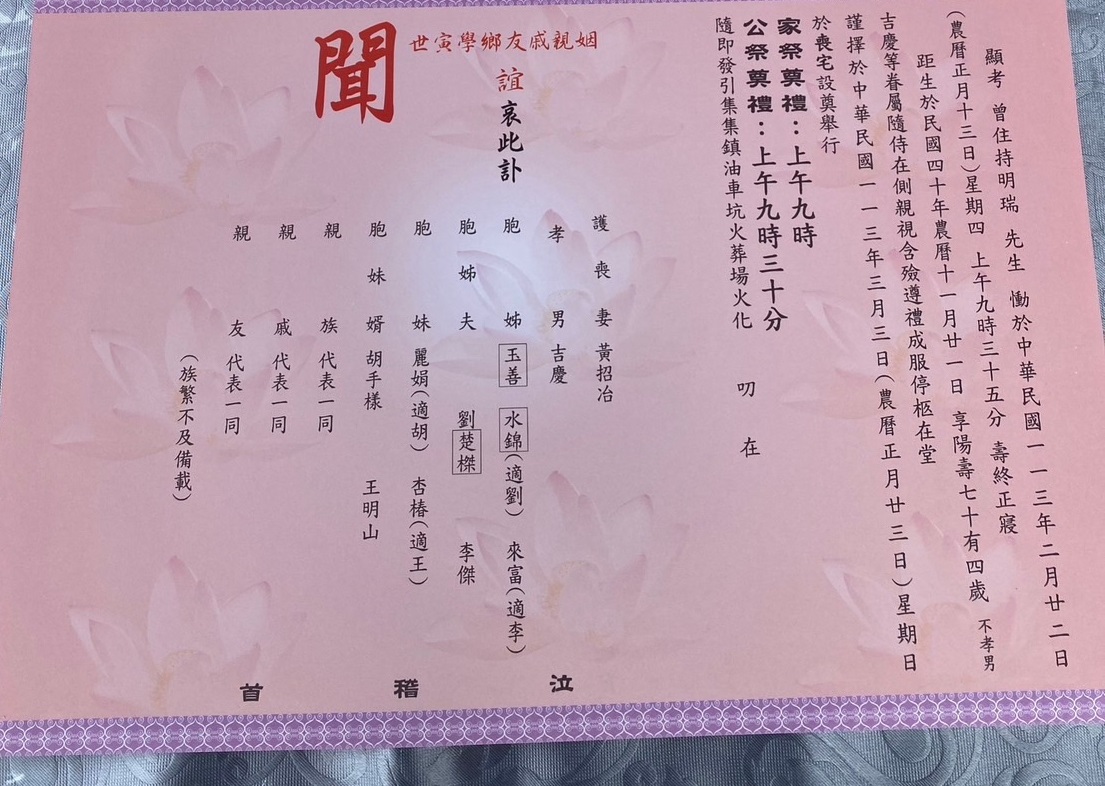 顯考 曾住持明瑞 先生 慟於中華民國一一三年二月廿二日
(農曆正月十三日)星期四 上午九時三十五分 壽終正寢
距生於民國四十年農曆十一月廿一日 享陽壽七十有四歲 不孝男
吉慶等眷屬隨侍在側親視含殮遵禮成服停柩在堂
謹擇於中華民國一一三年三月三日(農曆正月廿三日)星期日
於喪宅設奠舉行
家祭奠禮：上午九時
公祭奠禮：上午九時三十分
隨即發引集集鎮油車坑火葬場火化 叨 在
姻親戚友鄉學寅世
誼 哀此訃
聞
護喪妻 黃招治
孝男 吉慶
胞姊 玉善 水錦(適劉) 來富(適李)
胞姊夫 劉楚榤 李傑
胞妹 麗娟(適胡) 杏椿(適王)
胞妹婿 胡手樣 王明山
親族 代表一同
親戚 代表一同
親友 代表一同
(族繁不及備載)
泣 稽 首